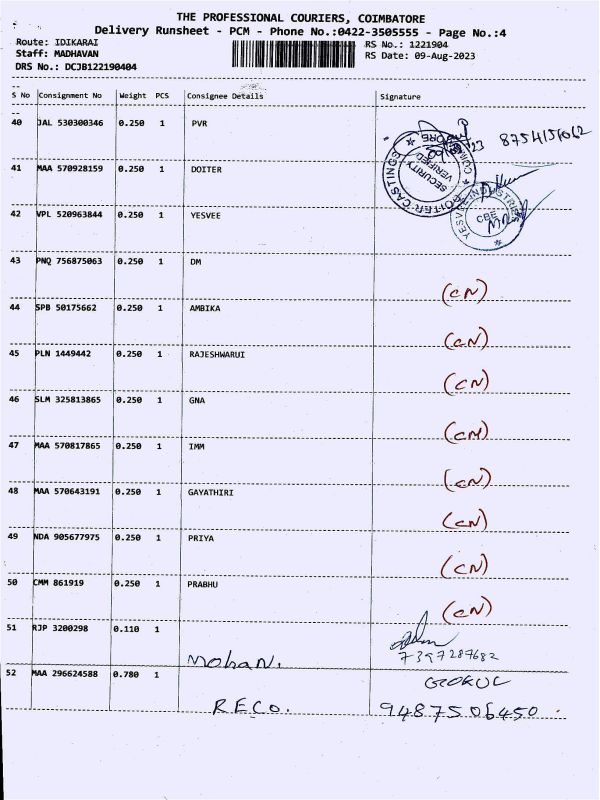 THE PROFESSIONAL COURIERS, COIMBATORE
Delivery Runsheet - PCM - Phone No.:0422-3505555 - Page No.:4
Route: IDIKARAI RS No.: 1221904
Staff: MADHAVAN RS Date: 09-Aug-2023
DRS No.: DCJB122190404
S No Consignment No Weight PCS Consignee Details Signature
40 JAL 530300346 0.250 1 PVR
8754151062
41 MAA 570928159 0.250 1 DOITER
DOITER CASTINGS SECURITY VERIFIED
42 VPL 520963844 0.250 1 YESVEE
YESVEE INDUSTRIES CBE
43 PNQ 756875063 0.250 1 DM
(CN)
44 SPB 50175662 0.250 1 AMBIKA
(CN)
45 PLN 1449442 0.250 1 RAJESHWARUI
(CN)
46 SLM 325813865 0.250 1 GNA
(CN)
47 MAA 570817865 0.250 1 IMM
(CN)
48 MAA 570643191 0.250 1 GAYATHIRI
(CN)
49 NDA 905677975 0.250 1 PRIYA
(CN)
50 CMM 861919 0.250 1 PRABHU
(CN)
51 RJP 3200298 0.110 1
Mohan. 7397287682
52 MAA 296624588 0.780 1 GOKUL
RECO. 9487506450